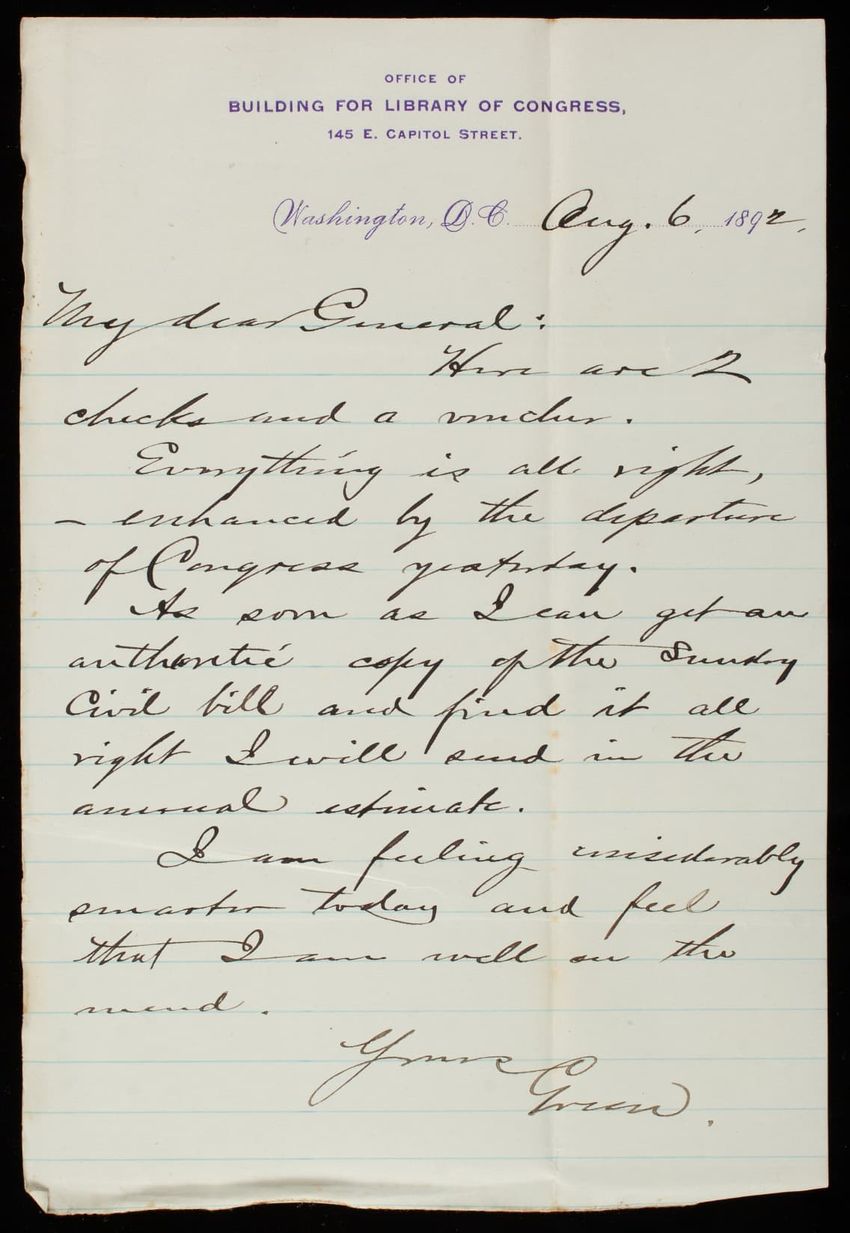 OFFICE OF
BUILDING FOR LIBRARY OF CONGRESS,
145 E. CAPITOL STREET.
Washington, D.C. Aug. 6, 1892.
My dear General:
Here are 2
checks and a voucher.
Everything is all right,
– enhanced by the departure
of Congress yesterday.
As soon as I can get an
authentic copy of the Sundry
Civil bill and find it all
right I will send in the
annual estimate.
I am feeling considerably
smarter today and feel
that I am well on the
mend.
Yours
Green.